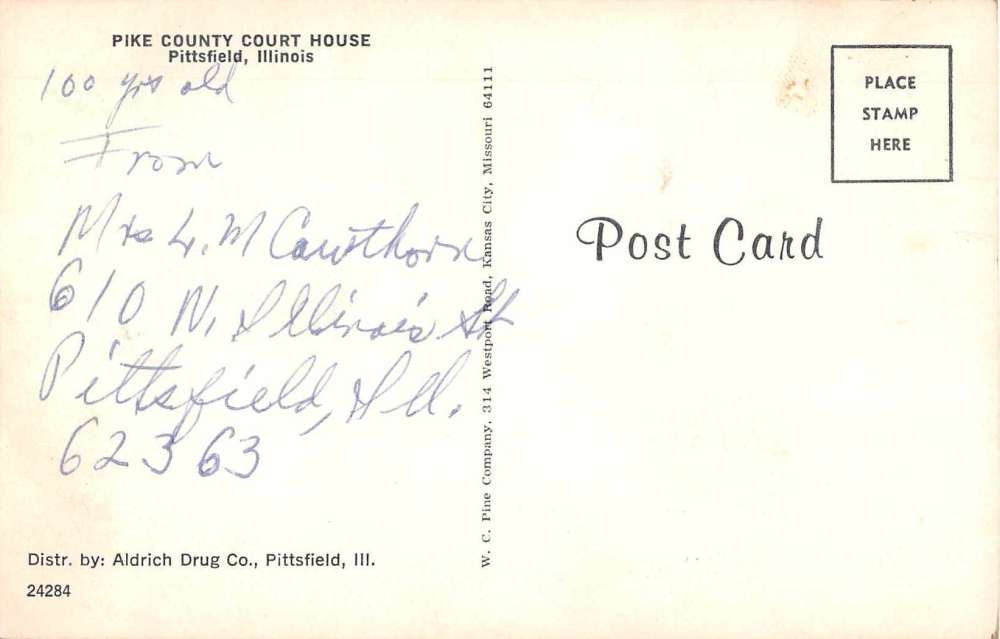 PIKE COUNTY COURT HOUSE
Pittsfield, Illinois
100 yrs old
From
Mrs L. M Cawthorn
610 N. Illinois St
Pittsfield, Ill.
62363
Distr. by: Aldrich Drug Co., Pittsfield, Ill.
24284
W. C. Pine Company, 314 Westport Road, Kansas City, Missouri 64111
PLACE
STAMP
HERE
Post Card